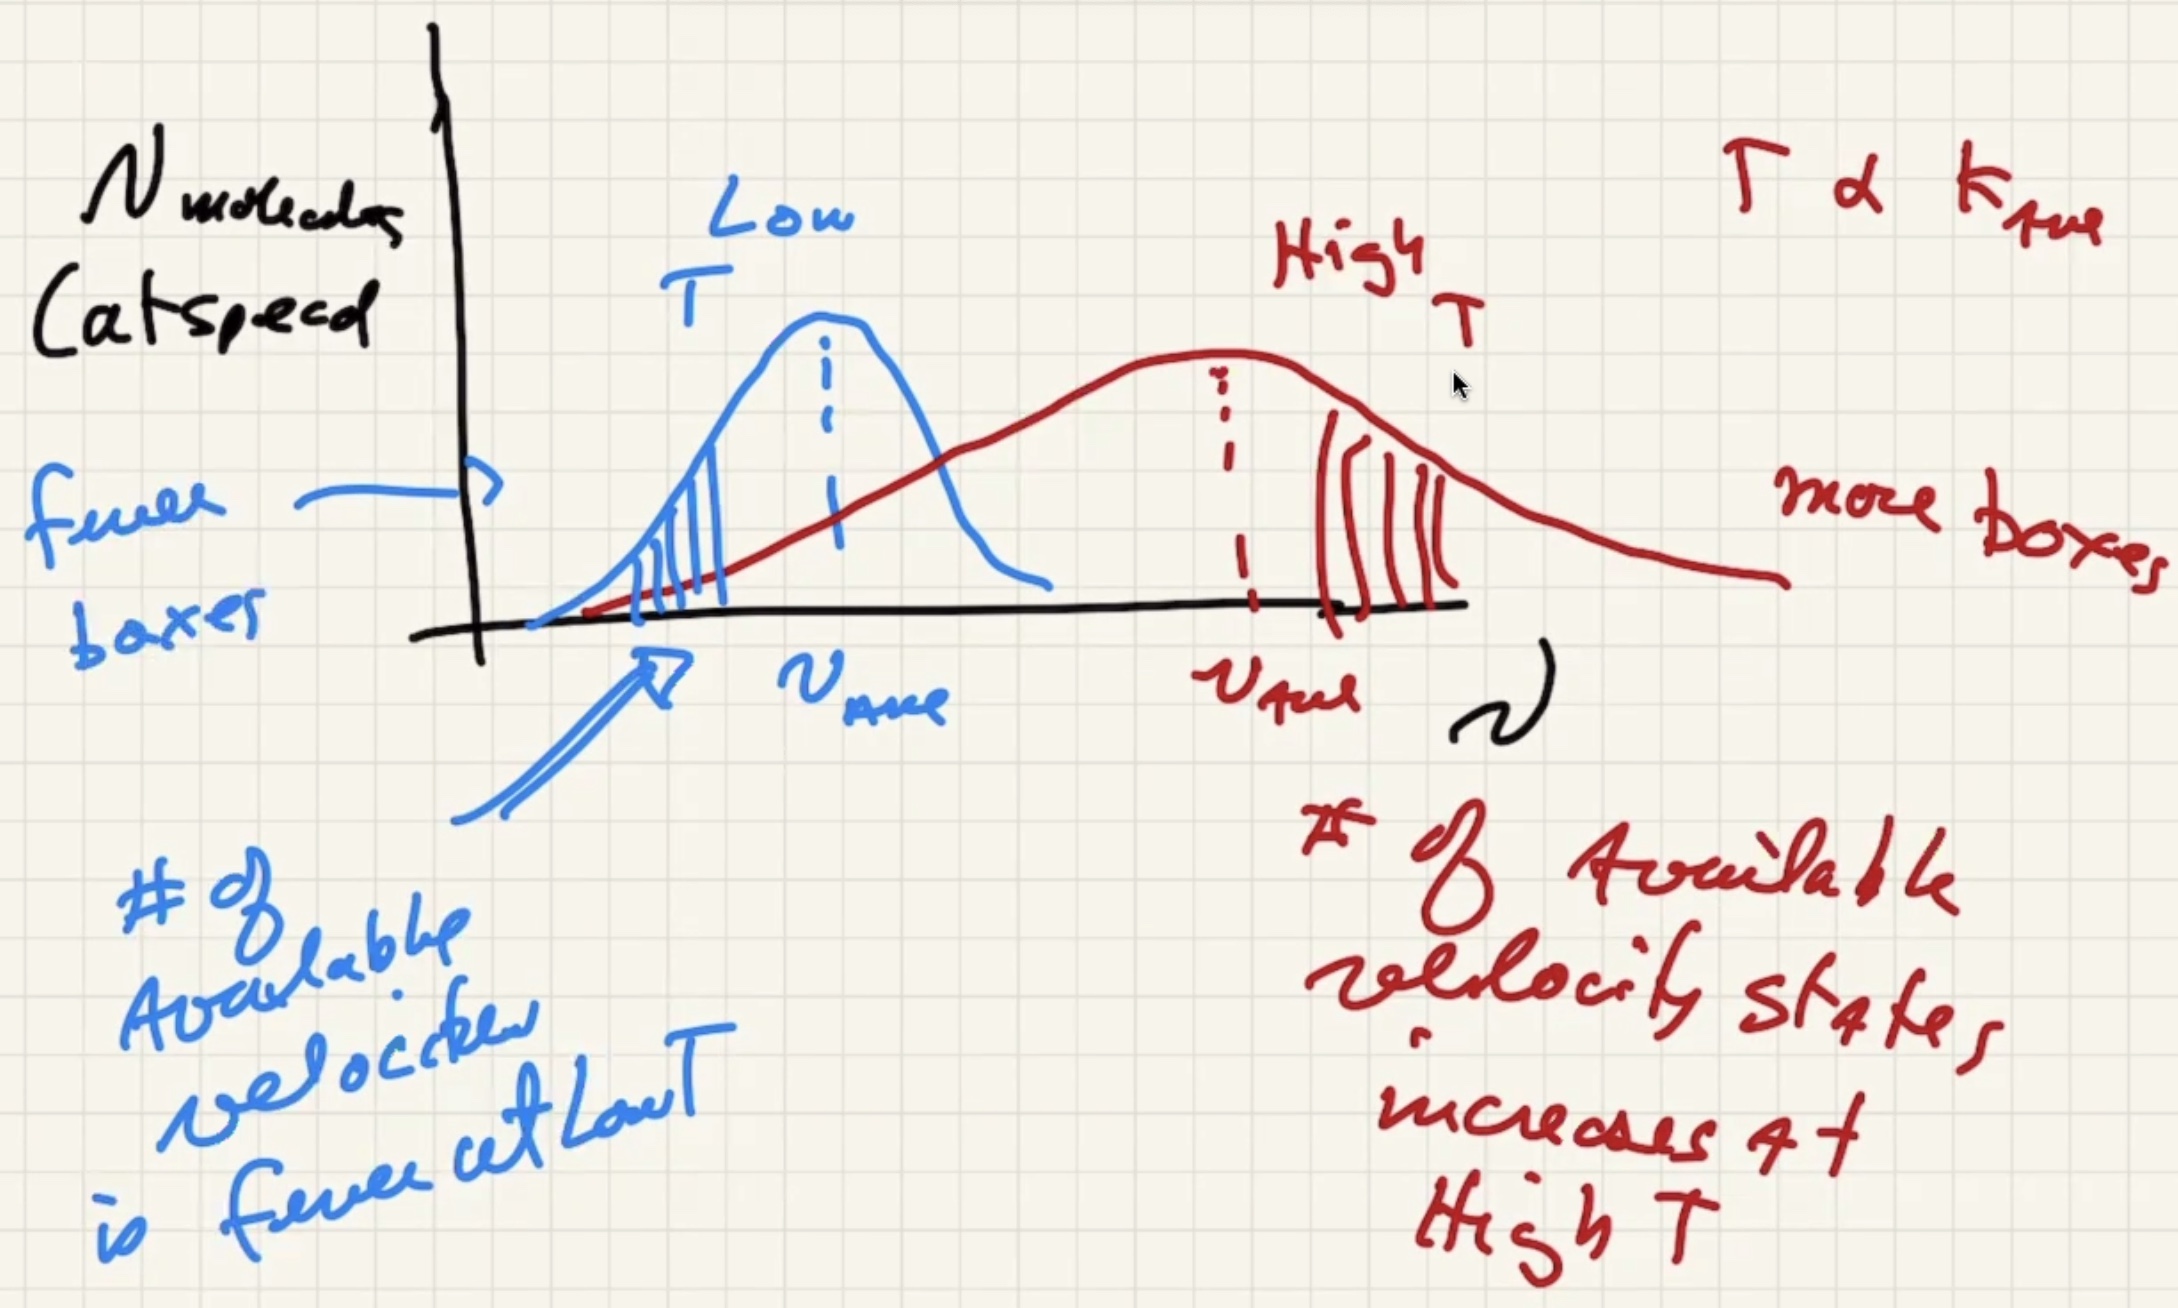 N molecules
(at speed
Low
T
High
T
T ∝ KAve
fewer
boxes
more boxes
vAve
vAve
v
# of
Available
velocities
is fewer at Low T
# of Available
velocity states
increases at
High T